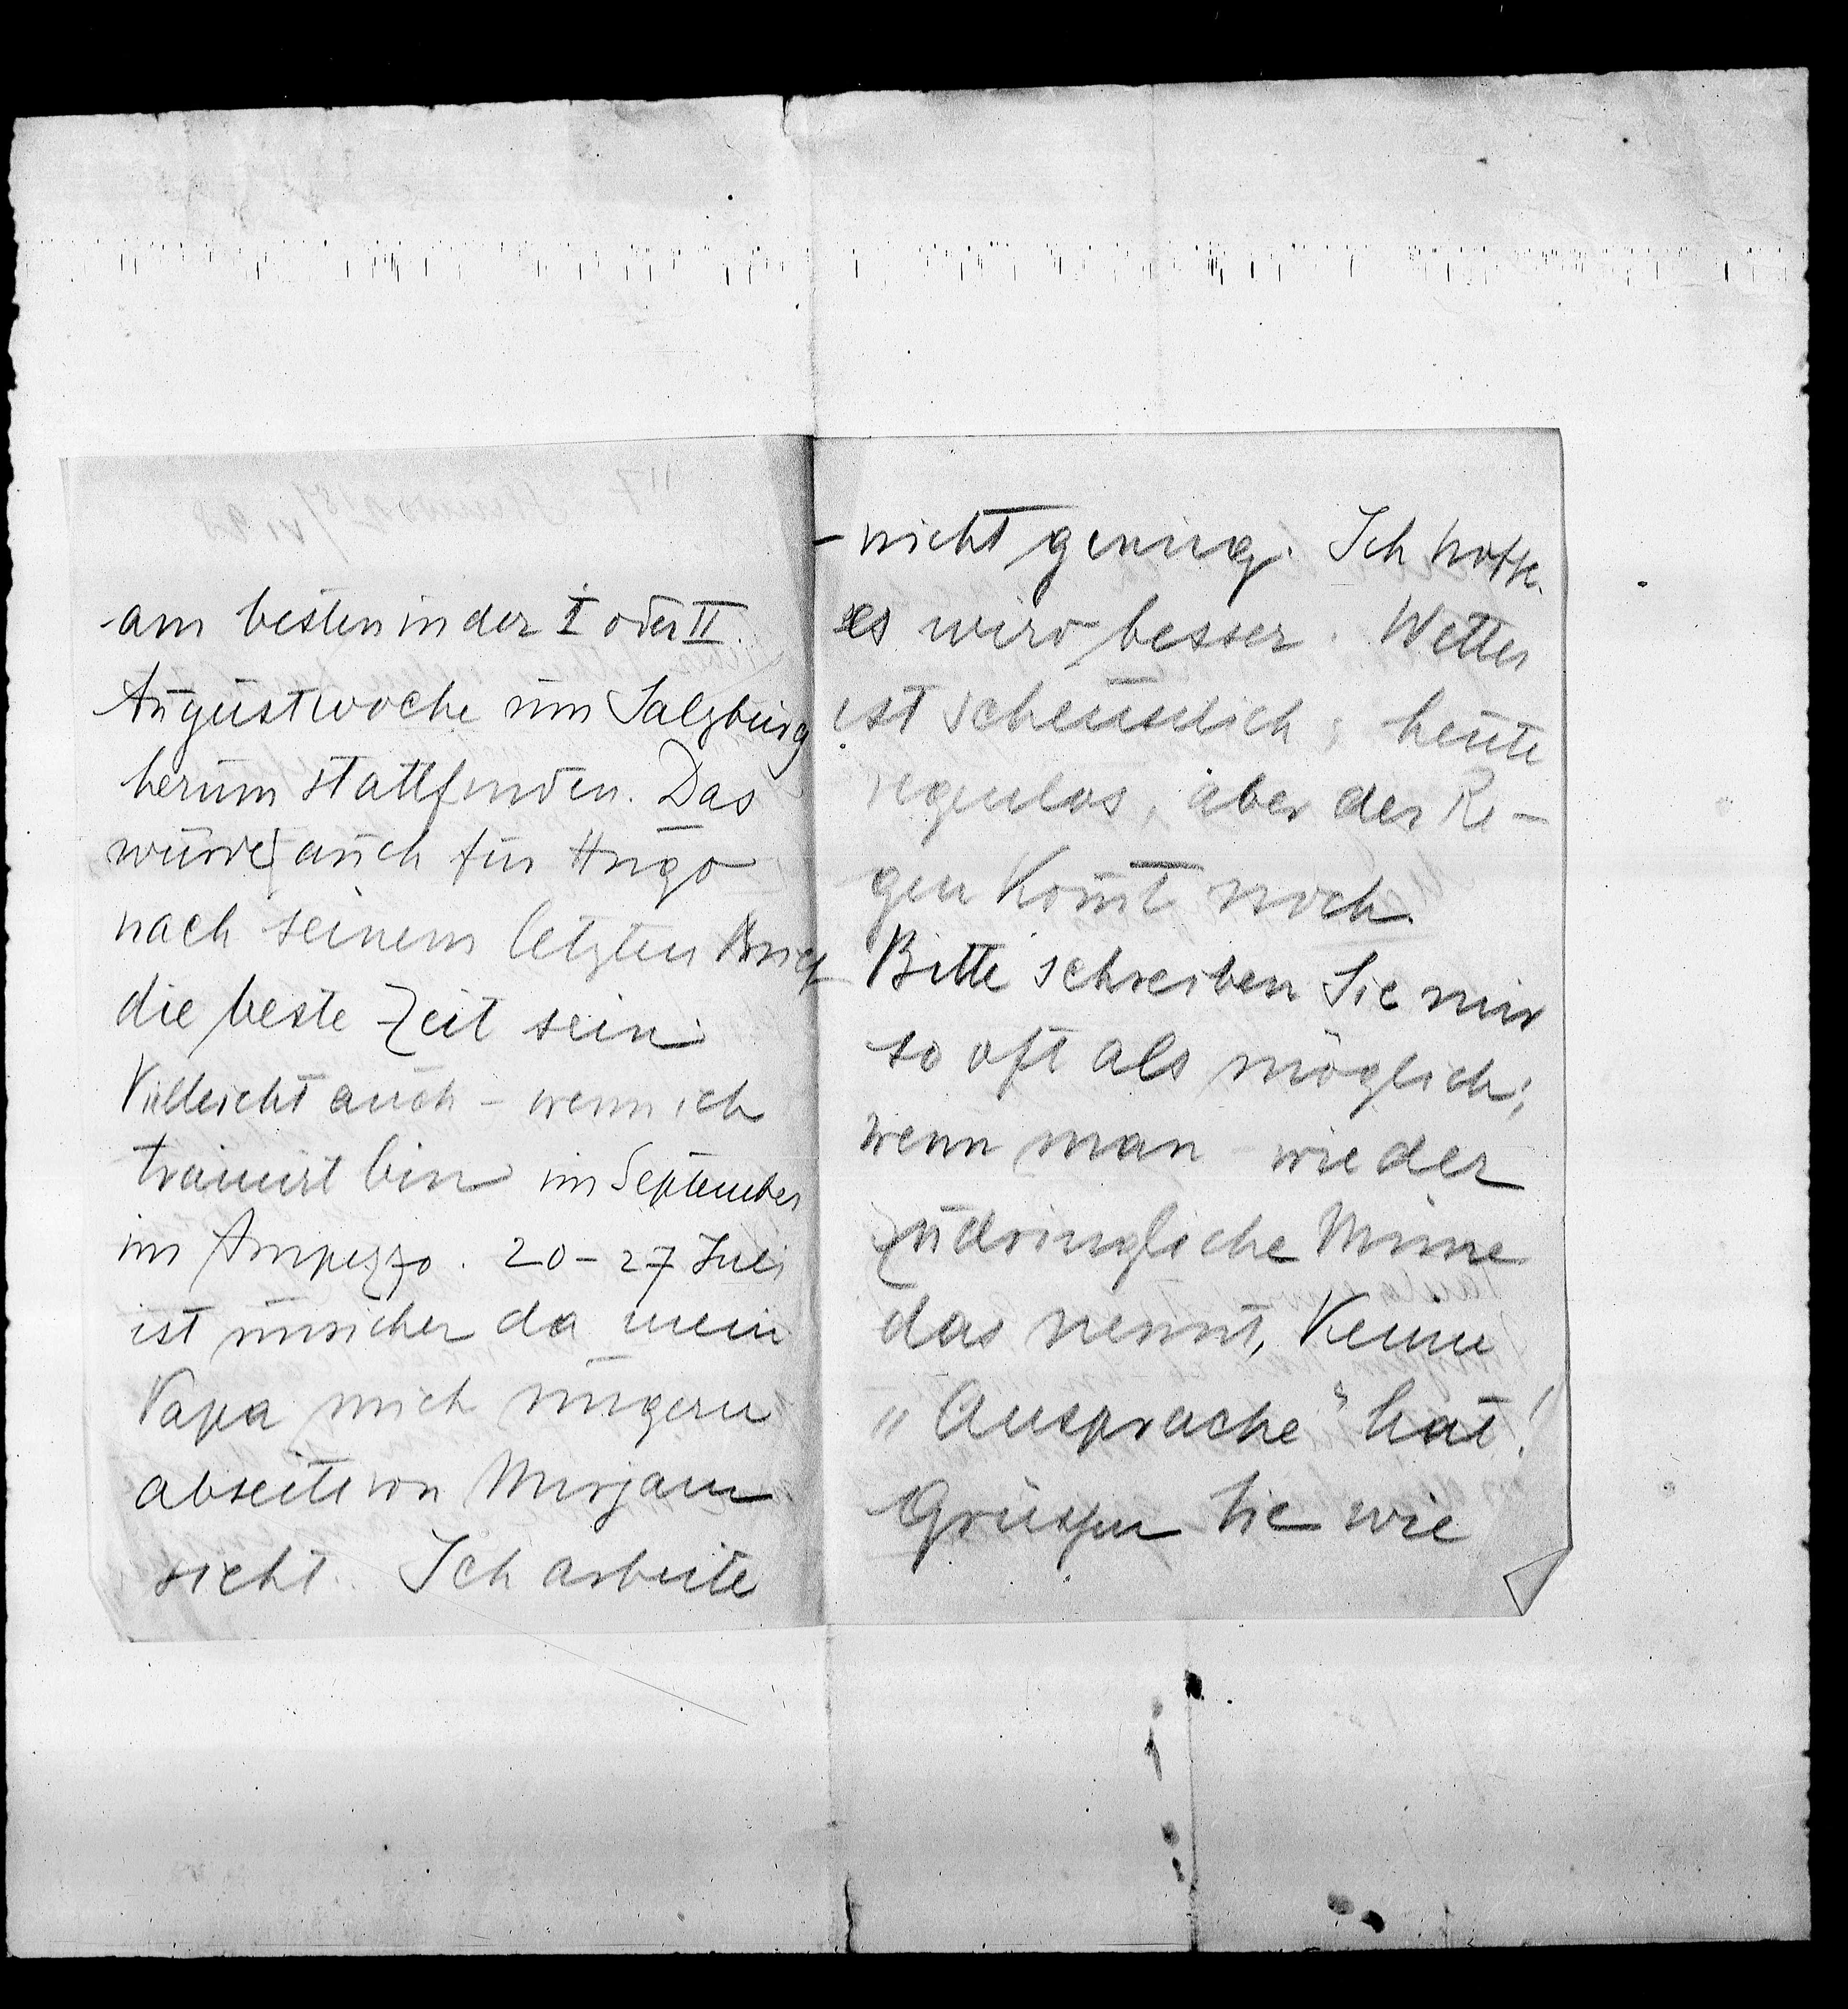 am besten in der I oder II.
Augustwoche um Salzburg
herum stattfinden. Das
würde auch für Hugo
nach seinem letzten Brief
die beste Zeit sein.
Vielleicht auch – wenn ich
trainirt bin im September
im Ampezzo. 20–27 Juli
ist unsicher da mein
Papa mich ungern
abseits von Mirjam
sieht. Ich arbeite
nicht genug. Ich hoffe
es wird besser. Wetter
ist scheusslich; heute
regenlos, aber der Re-
gen kom̄t noch.
Bitte schreiben Sie mir
so oft als möglich;
wenn man wieder
zudringliche Minne
das nennt, keine
„Ansprache“ hat!
Grüssen Sie wie